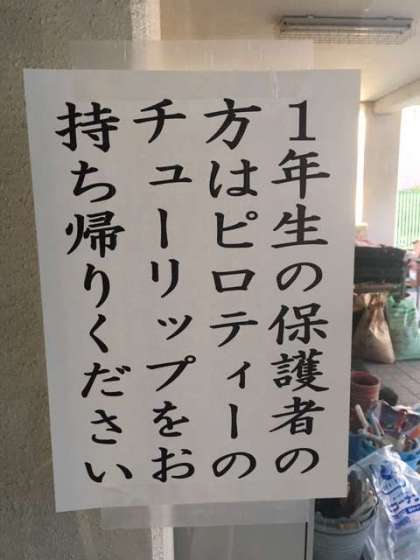 １年生の保護者の
方はピロティーの
チューリップをお
持ち帰りください